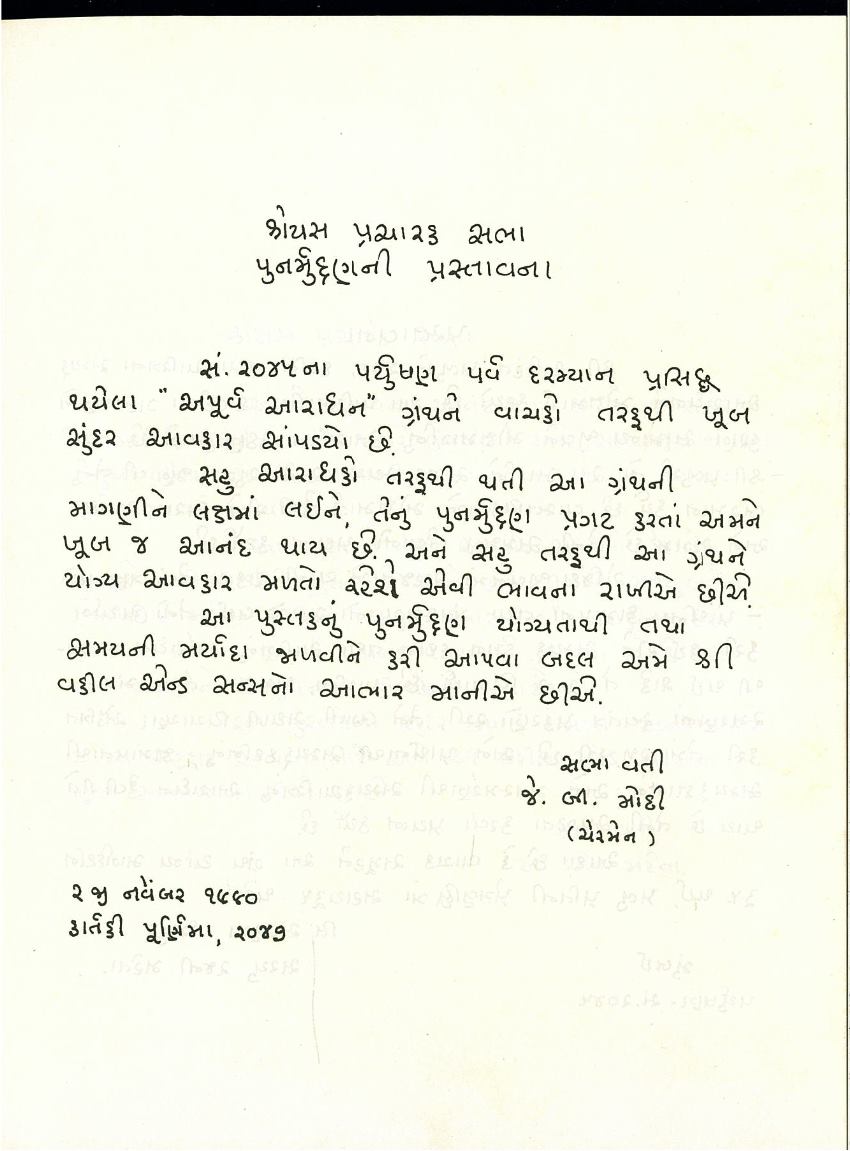 શ્રેયસ પ્રચારક સભા
પુનર્મુદ્રણની પ્રસ્તાવના
સં. ૨૦૪૫ના પર્યુષણ પર્વ દરમ્યાન પ્રસિદ્ધ
થયેલા "અપૂર્વ આરાધન" ગ્રંથને વાચકો તરફથી ખૂબ
સુંદર આવકાર સાંપડયો છે.
સહુ આરાધકો તરફથી થતી આ ગ્રંથની
માગણીને લક્ષમાં લઈને, તેનું પુનર્મુદ્રણ પ્રગટ કરતાં અમને
ખૂબ જ આનંદ થાય છે. અને સહુ તરફથી આ ગ્રંથને
યોગ્ય આવકાર મળતો રહેશે એવી ભાવના રાખીએ છીએ.
આ પુસ્તકનું પુનર્મુદ્રણ યોગ્યતાથી તથા
સમયની મર્યાદા જાળવીને કરી આપવા બદલ અમે શ્રી
વકીલ એન્ડ સન્સનો આભાર માનીએ છીએ.
સભા વતી
જે. બી. મોદી
(ચેરમેન)
૨ જી નવેંબર ૧૯૯૦
કાર્તકી પૂર્ણિમા, ૨૦૪૭